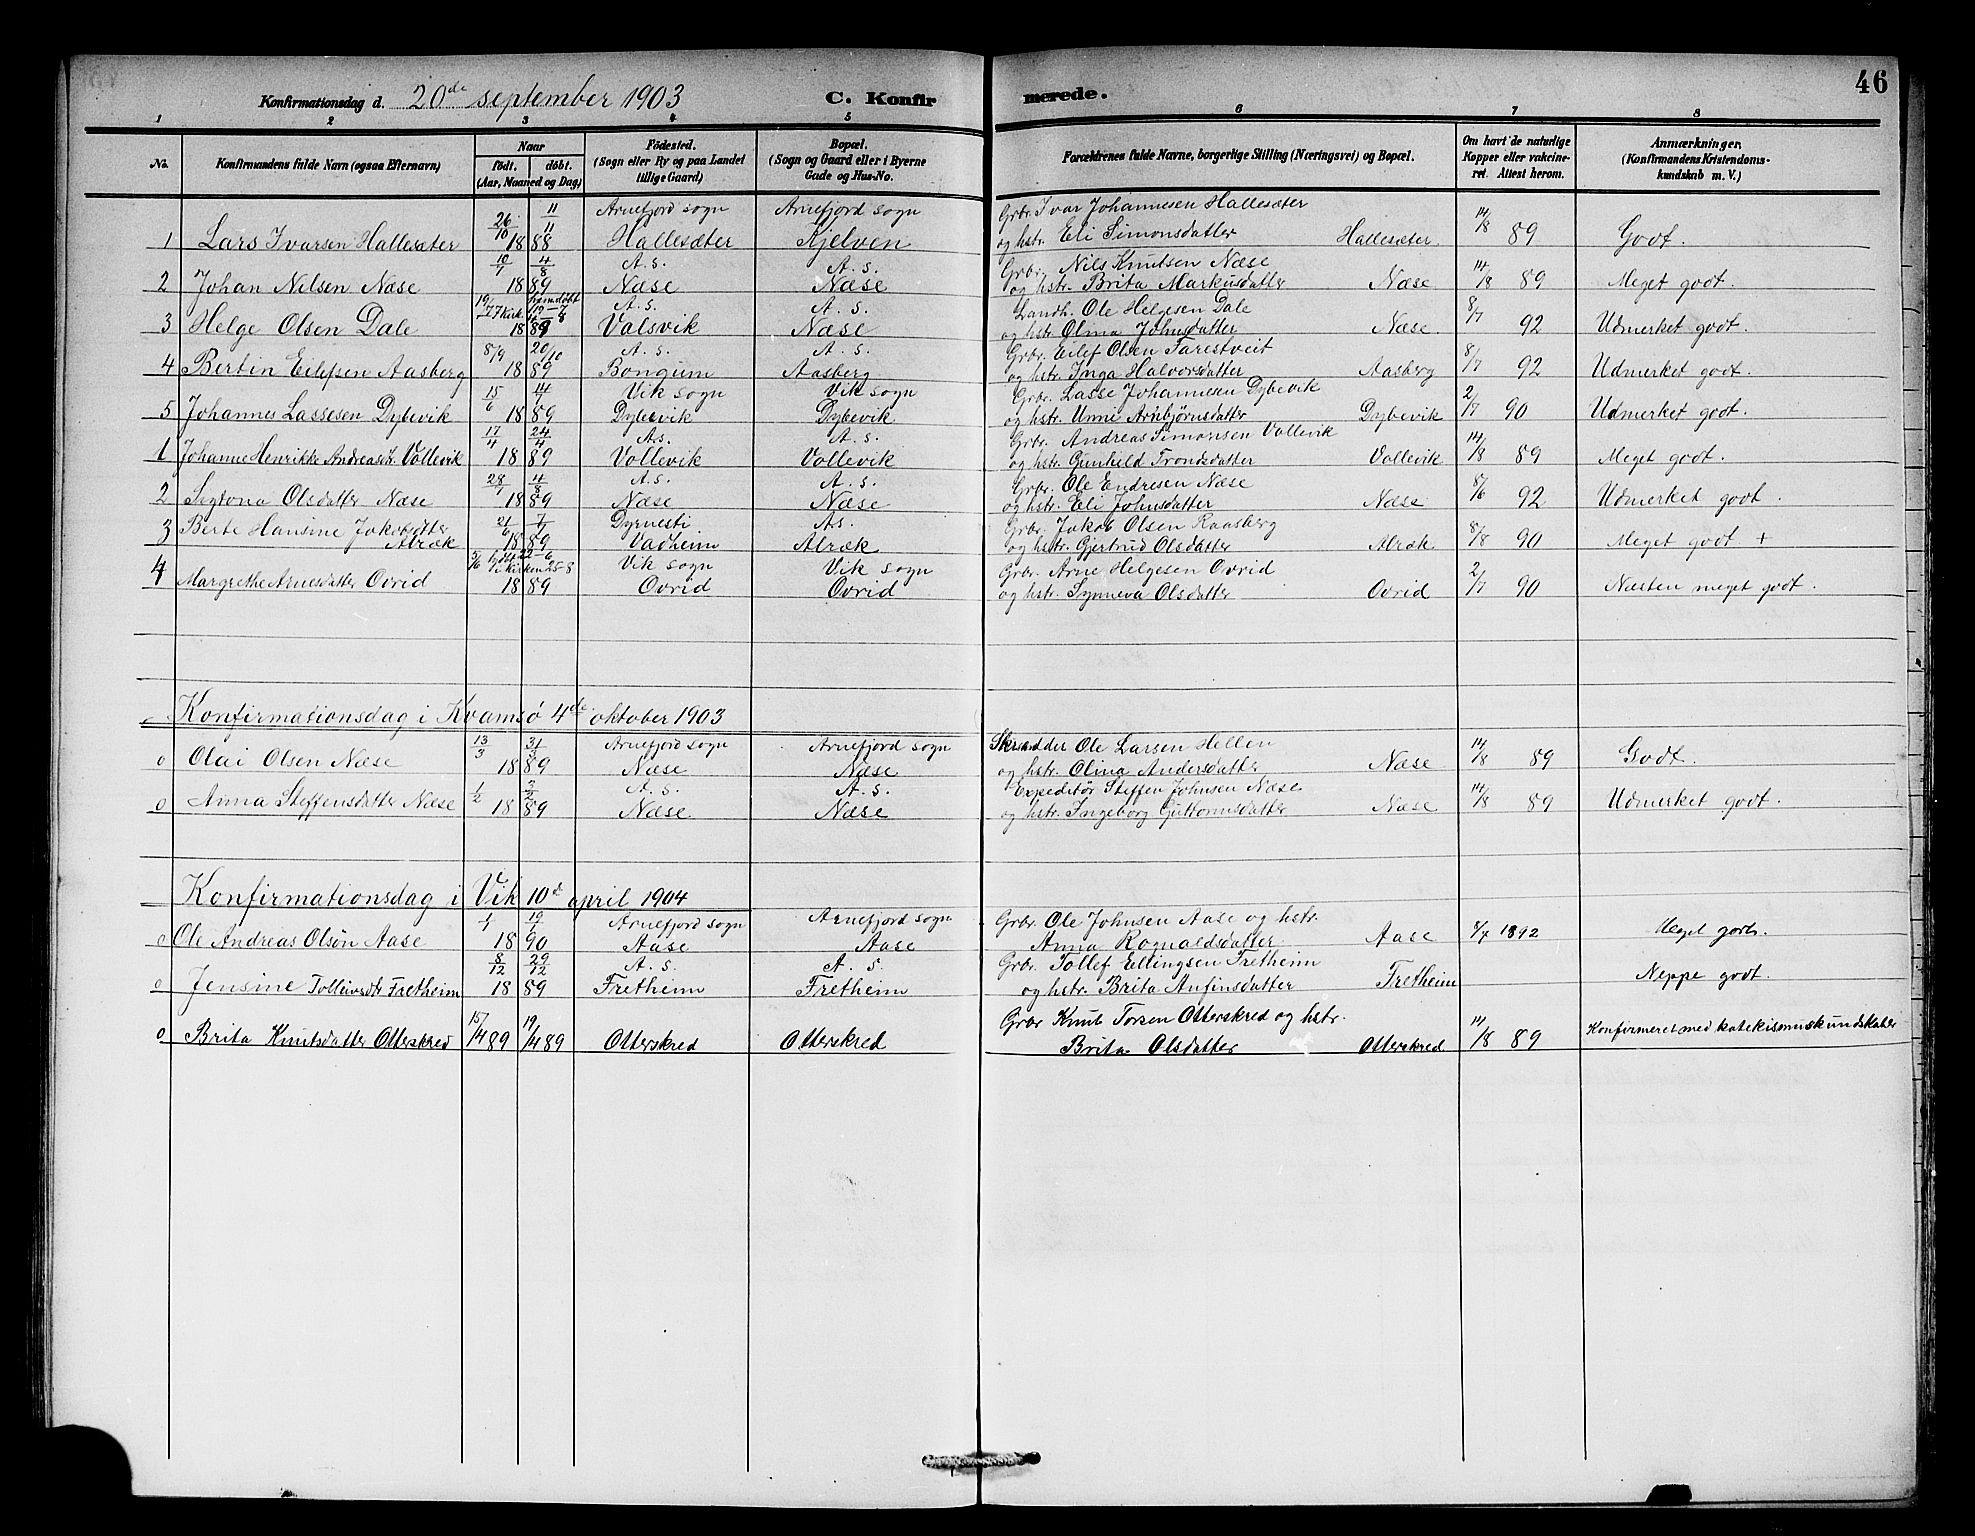 46
Konfirmationsdag d. 20de september 1903 C. Konfirmerede.
1 2 3 4 5 6 7 8
No. Konfirmandens fulde Navn (ogsaa Efternavn) Naar födt. döbt. (Aar, Maaned og Dag) Födested. (Sogn eller By og paa Landet tillige Gaard) Bopæl. (Sogn og Gaard eller i Byerne Gade og Hus-No. Forældrenes fulde Navne, borgerlige Stilling (Næringsvei) og Bopæl. Om havt de naturlige Kopper eller vakcineret. Attest herom. Anmærkninger, (Konfirmandens Kristendomskundskab m. V.)
26/10 11/11 Arnefjord sogn Arnefjord sogn Grbr. Ivar Johannesen Hallesæter
1 Lars Ivarsen Hallesæter 1888 Hallesæter Kjelven og hstr. Eli Simonsdatter Hallesæter 14/8 89 Godt.
10/7 4/8 A. S. A. S. Grbr. Nils Knutsen Næse
2 Johan Nilsen Næse 1889 Næse Næse og hstr. Brita Markusdatter Næse 14/8 89 Meget godt.
A. S. A. S. Landh. Ole Helgesen Dale
3 Helge Olsen Dale 1889 Valsvik Næse og hstr. Olina Johnsdatter Næse. 8/7 92 Udmerket godt.
8/9 20/10 A. S. A. S. Grbr. Eilef Olsen Farestveit
4 Bertin Eilefsen Aasberg 1889 Bongum Aasberg og hstr. Inga Halvorsdatter Aasberg 8/7 92 Udmerket godt.
15/6 14/7 Vik sogn Vik sogn Grbr. Lasse Johannesen Dybevik
5 Johannes Lassesen Dybevik 1889 Dybevik Dybevik og hstr. Unni Arnbjørnsdatter Dybevik 2/7 90 Udmerket godt.
17/4 24/4 A. S. A. S. Grbr. Andreas Simonsen Vollevik
1 Johanne Henrikke Andreasdtr. Vollevik 1889 Vollevik Vollevik og hstr. Gunhild Trondsdatter Vollevik 14/8 89 Meget godt.
28/7 4/8 A. S. A. S. Grbr. Ole Endresen Næse
2 Olsdatter Næse 1889 Næse Næse og hstr. Eli Johnsdatter Næse 8/6 92 Udmerket godt.
21/6 7/7 Dyrnesti A. S. Grbr. Jakob Olsen Raasberg
3 Berte Hansine Jakobsdtter Alræk 1889 Vadheim Alræk og hstr. Gjertrud Olsdatter Alræk 8/8 90 Meget godt +
5/6 i kirken 25-8 Vik sogn Vik sogn Grbr. Arne Helgesen Ovrid
4 Margrethe Arnesdatter Ovrid 1889 Ovrid Ovrid og hstr. Synneva Olsdatter Ovrid 2/7 90 Næsten meget godt.
Konfirmationsdag i Kvamsö 4de oktober 1903
13/3 31/3 Arnefjord sogn Arnefjord sogn Skrædder Ole Larsen Hellen
0 Olai Olsen Næse 1889 Næse Næse og hstr. Olina Andersdatter Næse 14/8 89 Godt.
1/2 2/2 A. S. A. S. Expeditör Steffen Johnsen Næse
0 Anna Steffensdatter Næse 1889 Næse Næse og hstr. Ingeborg Guttormsdatter Næse 14/8 89 Udmerket godt.
Konfirmationsdag i Vik 10d april 1904
1/1 19/1 Arnefjord sogn Arnefjord sogn Grbr. Ole Johnsen Aase og hstr.
0 Ole Andreas Olsön Aase 1890 Aase Aase Anna Rognaldsdatter Aase 8/7 1892 Meget godt.
8/12 29/12 A. S. A. S. Grbr. Tollef Ellingsen Fretheim
0 Jensine Tolleivsdtr Fretheim 1889 Fretheim Fretheim og hstr. Brita Anfinsdatter Fretheim Neppe godt.
15/4 89 19/4 89 Grbr Knut Torsen Otterskred og hstr.
0 Brita Knutsdatter Otterskred Otterskred Otterskred Brita Olsdatter Otterskred 14/8 89 Konfirmeret med katekismuskundskaber